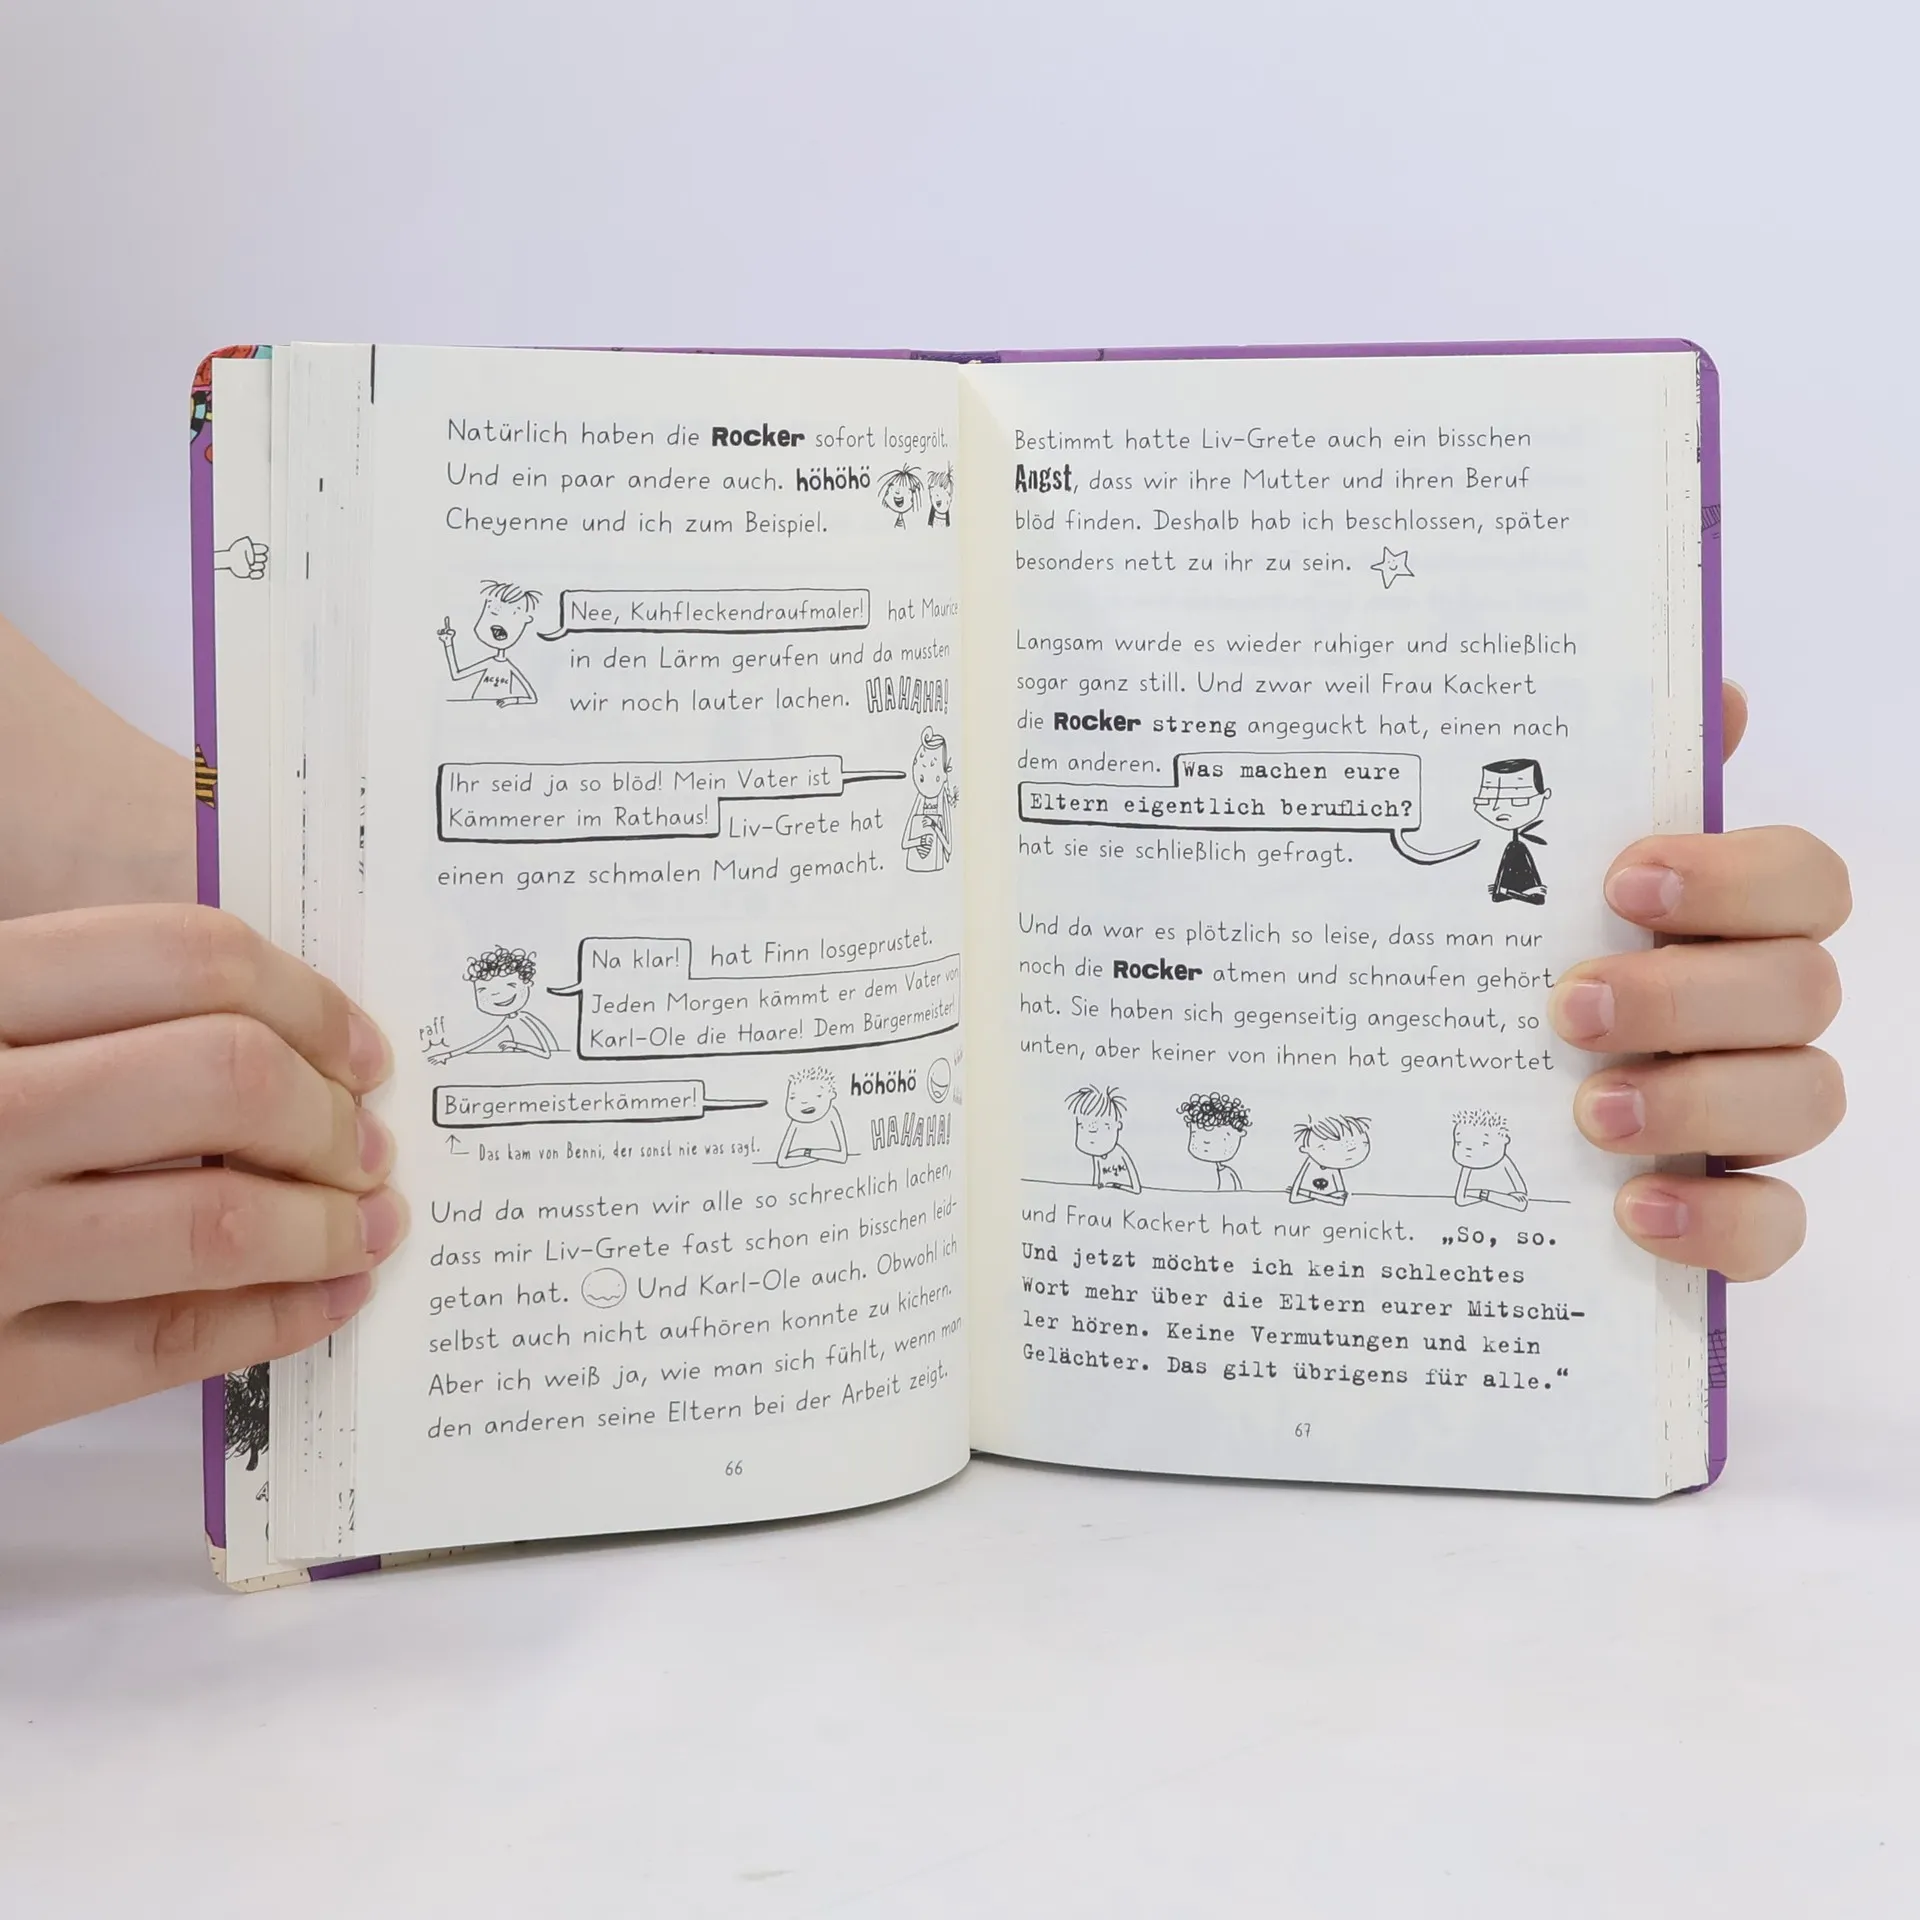 Natürlich haben die Rocker sofort losgegrölt.
Und ein paar andere auch. höhöhö
Cheyenne und ich zum Beispiel.
Nee, Kuhfleckendraufmaler! hat Maurice
in den Lärm gerufen und da mussten
wir noch lauter lachen. HAHAHA!
Ihr seid ja so blöd! Mein Vater ist
Kämmerer im Rathaus! Liv-Grete hat
einen ganz schmalen Mund gemacht.
Na klar! hat Finn losgeprustet.
Jeden Morgen kämmt er dem Vater von
Karl-Ole die Haare! Dem Bürgermeister!
paff
Bürgermeisterkämmer! höhöhö
HAHAHA!
Das kam von Benni, der sonst nie was sagt.
Und da mussten wir alle so schrecklich lachen,
dass mir Liv-Grete fast schon ein bisschen leid-
getan hat. Und Karl-Ole auch. Obwohl ich
selbst auch nicht aufhören konnte zu kichern.
Aber ich weiß ja, wie man sich fühlt, wenn man
den anderen seine Eltern bei der Arbeit zeigt.
66
Bestimmt hatte Liv-Grete auch ein bisschen
Angst, dass wir ihre Mutter und ihren Beruf
blöd finden. Deshalb hab ich beschlossen, später
besonders nett zu ihr zu sein.
Langsam wurde es wieder ruhiger und schließlich
sogar ganz still. Und zwar weil Frau Kackert
die Rocker streng angeguckt hat, einen nach
dem anderen. Was machen eure
Eltern eigentlich beruflich?
hat sie sie schließlich gefragt.
Und da war es plötzlich so leise, dass man nur
noch die Rocker atmen und schnaufen gehört
hat. Sie haben sich gegenseitig angeschaut, so
unten, aber keiner von ihnen hat geantwortet
und Frau Kackert hat nur genickt. „So, so.
Und jetzt möchte ich kein schlechtes
Wort mehr über die Eltern eurer Mitschü-
ler hören. Keine Vermutungen und kein
Gelächter. Das gilt übrigens für alle.“
67